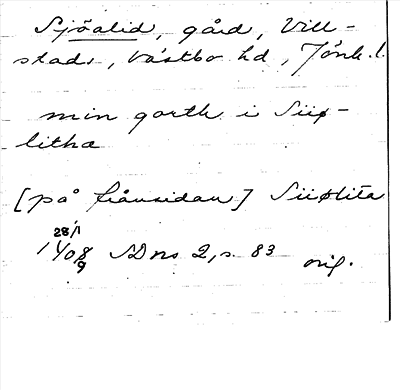 Sjöalid, gård, Vill-
stads, Västbo hd, Jönk. l.
min gorth i Siiø-
litha
[på frånsidan] Siiølita
28/1
1408 SD ns 2, s. 83 orig.
9